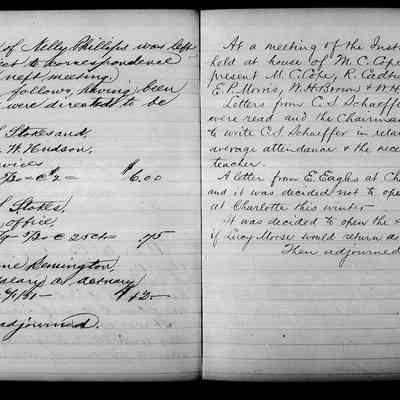 of Nelly Phillips was left
ject to correspondence
next meeting.
follows, having been
were directed to be
Stokes and
W. Hudson,
vices
$6.00
Stokes,
office,
25cts .75
Benington,
salary as
9/1/81
$42.
adjourned.
At a meeting of the Inst
held at house of M. C. Cope
present M. C. Cope, R. Cadbu
E. P. Morris, W. H. Brown & W. H.
Letters from C. S. Schaeffer
were read and the Chairman
to write C. S. Schaeffer in relat
average attendance & the nece
teacher.
A letter from E. Eagles at Ch
and it was decided not to ope
at Charlotte this winter
It was decided to open the
if Lucy Morse would return as
Then adjourned